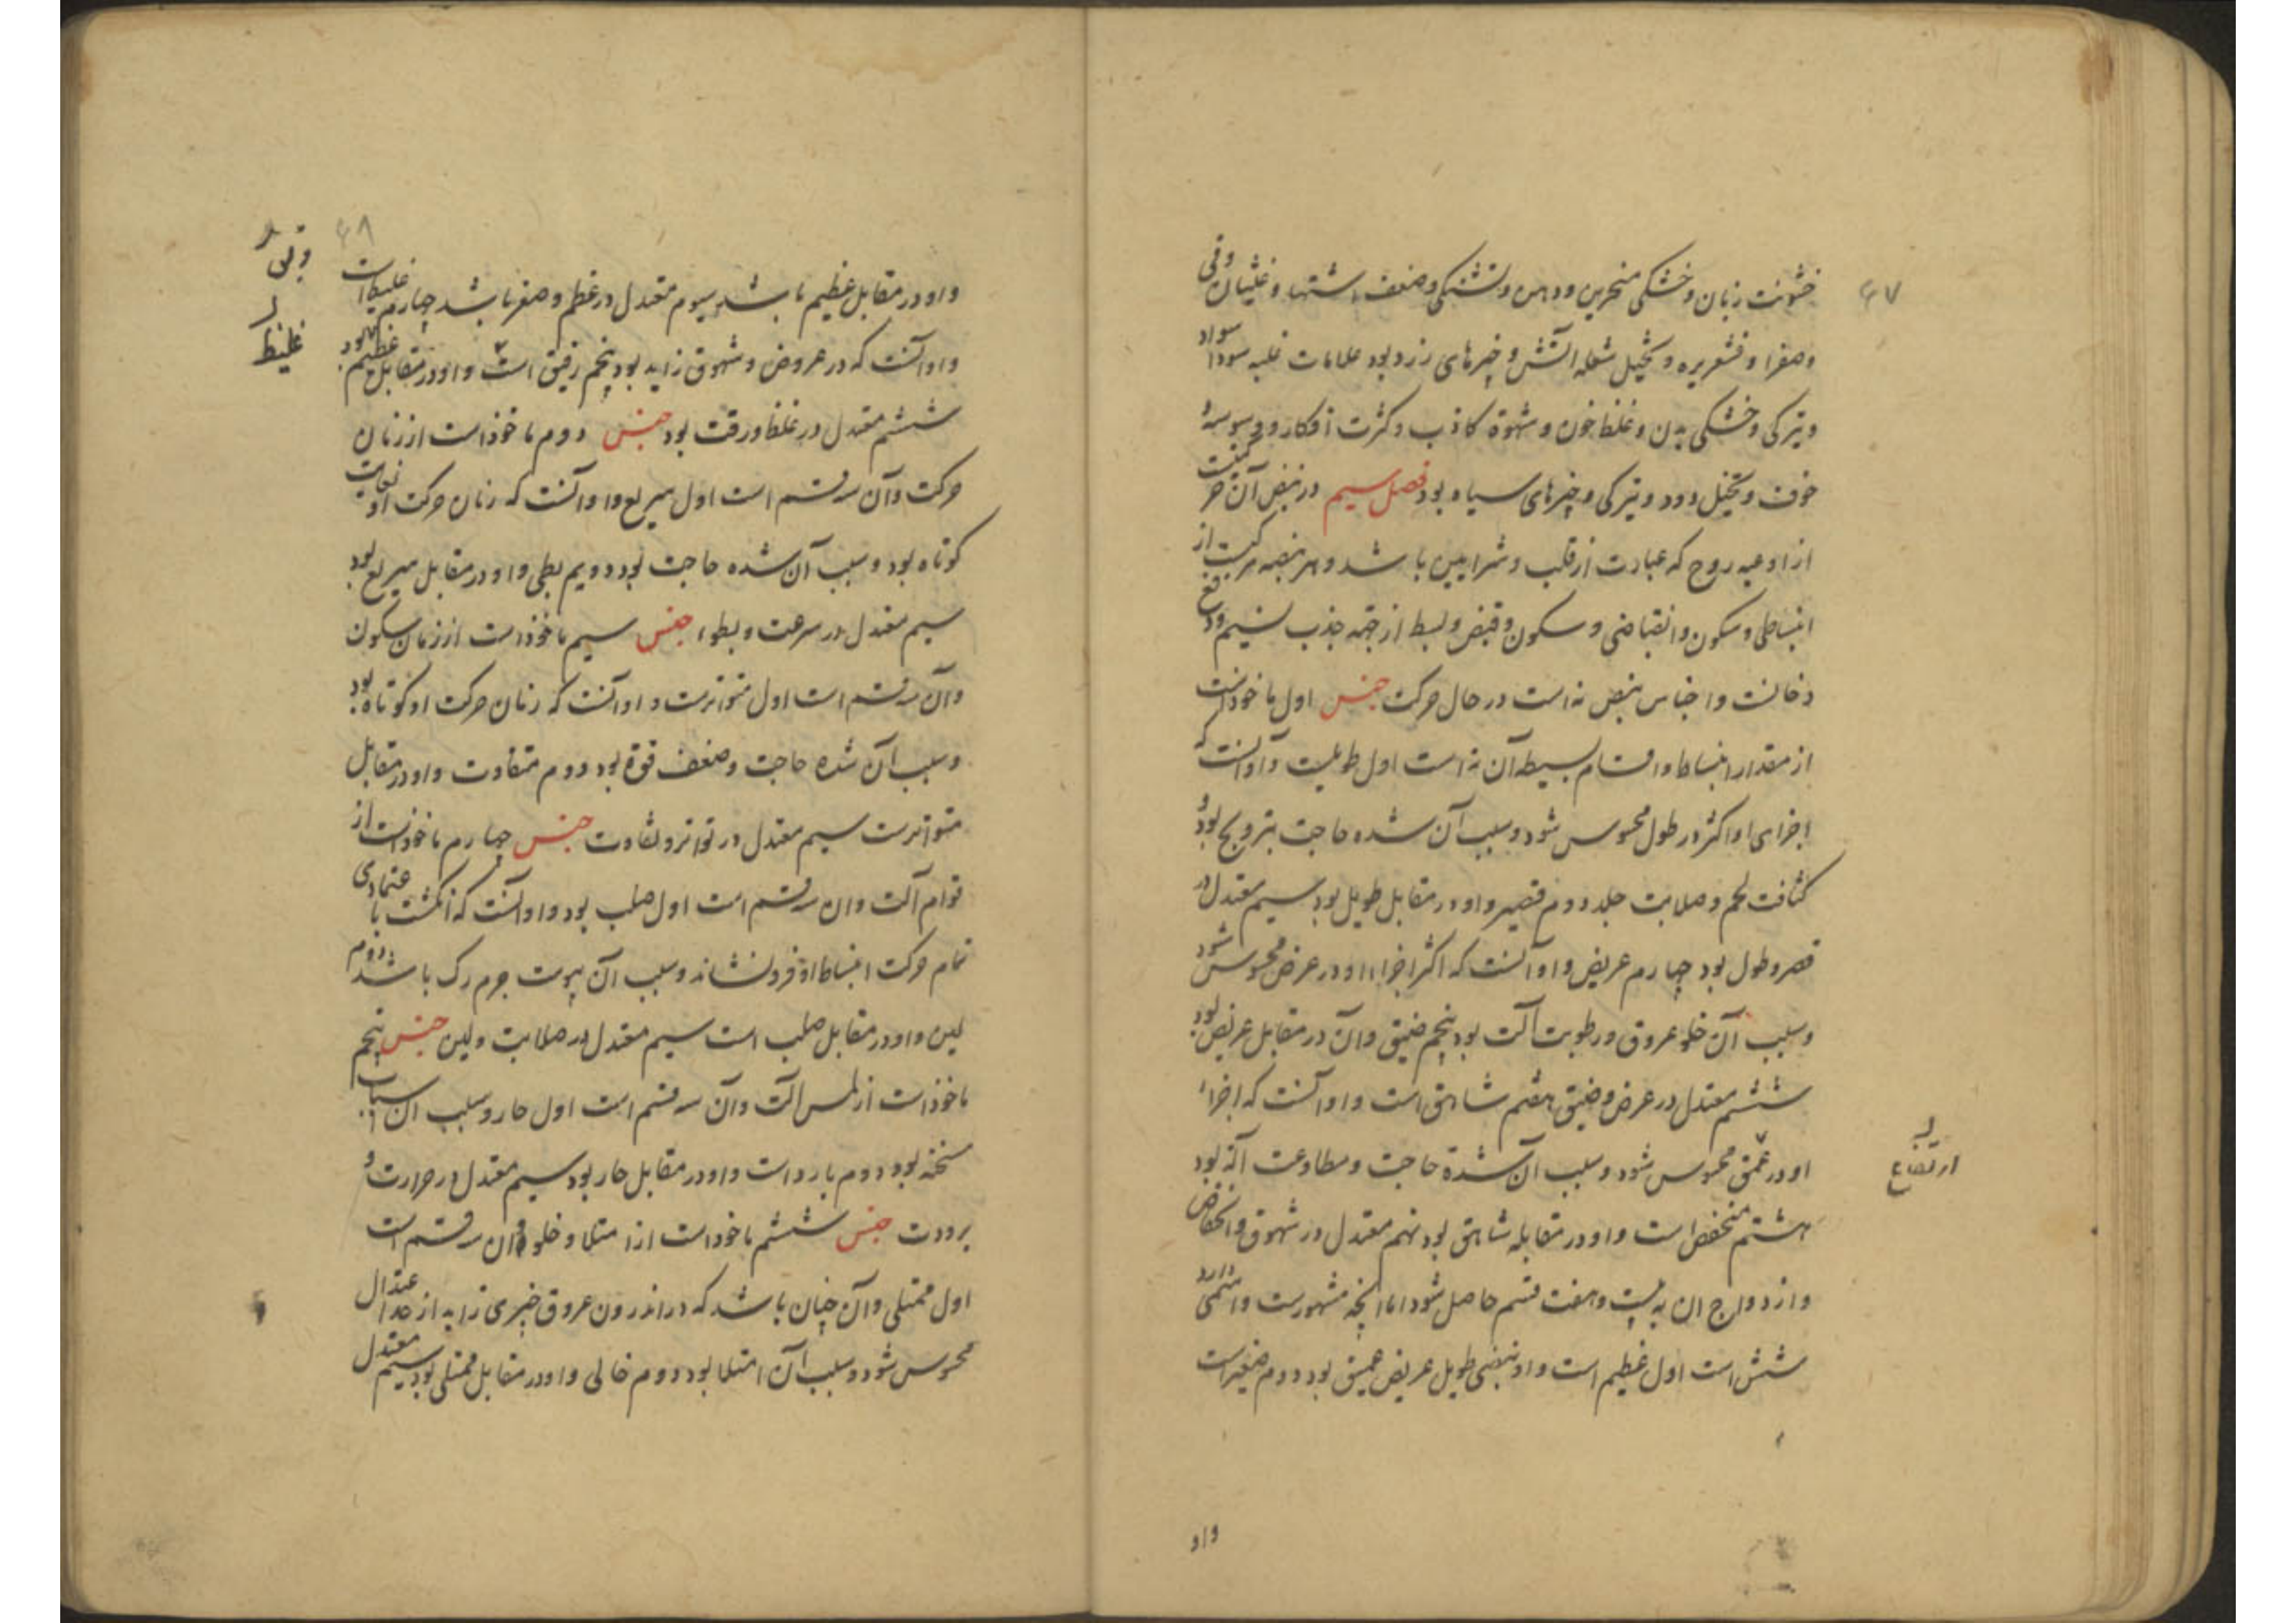 ۴۷
خشونت زبان و خشکی منخرین و دهن و تشنگی و ضعف اشتها و غثیان وقی
وصفرا و قشعریره و تخیل شعله آتش و چیزهای زرد بود علامات غلبه سودا سواد
و تیرکی و خشکی بدن و غلظ خون و شهوة کاذب و کثرت افکار و وسوسه و
خوف و تخیل دود و تیرکی و چیزهای سیاه بود فصل سیم در نبض آن حرکتیست
از اوعیه روح که عبارت از قلب و شرایین باشد و هر نبضه مرکبست از
انبساطی و سکون و انقباضی و سکون و قبض و بسط از جهة جذب نسیم و دفع
دخانست و اجناس نبض نه است در حال حرکت جنس اول ماخوذست
از مقدار انبساط و اقسام بسیطه آن نه است اول طویلست و او آنست که
اجزای او اکثر در طول محسوس شود و سبب آن شده حاجت بترویج بود و
کثافت لحم و صلابت جلد دوم قصیر و او در مقابل طویل بود سیم معتدل در
قصر و طول بود چهارم عریض و او آنست که اکثر اجزاء او در عرض محسوس شود
و سبب آن خلو عروق و رطوبت آلت بود پنجم ضیق و آن در مقابل عریض بود
ششم معتدل در عرض و ضیق هفتم شاهق است و او آنست که اجزاء
او در عمق محسوس شود و سبب آن شدة حاجت و مطاوعت آلة بود
ارتفاع
هشتم منخفض است و او در مقابله شاهق بود نهم معتدل در شهوق و انخفاض
و از دواج ان به بیست و هفت قسم حاصل شود اما انچه مشهورست و اسمی دارد
شش است اول عظیم است و او نبضی طویل عریض عمیق بود دوم صغیر است
واو
۴۸
و او در مقابل عظیم باشد سیوم معتدل در عظم و صغر باشد چهارم غلیظ است
غلیظ
و او آنست که در عروض و شهوق زاید بود پنجم رقیق است و او در مقابل عظیم بود
ششم معتدل در غلظ و رقت بود جنس دوم ماخوذ است از زمان
حرکت و آن سه قسم است اول سریع و او آنست که زمان حرکت او
کوتاه بود و سبب آن شده حاجت بود دویم بطی و او در مقابل سریع بود
سیم معتدل در سرعت و بطوء جنس سیم ماخوذ است از زمان سکون
و آن سه قسم است اول متواترست و او آنست که زمان حرکت او کوتاه بود
و سبب آن شده حاجت و ضعف قوة بود دوم متفاوت و او در مقابل
متواترست سیم معتدل در تواتر و تفاوت جنس چهارم ماخوذست از
قوام آلت و ان سه قسم است اول صلب بود و او آنست که انکشت با عتمادی
تمام حرکت انبساط او فرو نشاند و سبب آن یبوست جرم رک باشد دوم
لین و او در مقابل صلب است سیم معتدل در صلابت و لین جنس پنجم
ماخوذ است از لمس آلت و آن سه قسم است اول حار و سبب ان اسباب
سخنه بود دوم بارد است و او در مقابل حار بود سیم معتدل در حرارت و
برودت جنس ششم ماخوذ است از امتلا و خلو و ان سه قسم است
اول ممتلی و آن چنان باشد که در اندرون عروق چیزی زاید از حد اعتدال
محسوس شود و سبب آن امتلا بود دوم خالی و او در مقابل ممتلی بود سیم معتدل